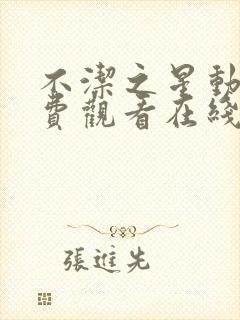 不潔之星動
費觀看在綫
張進先